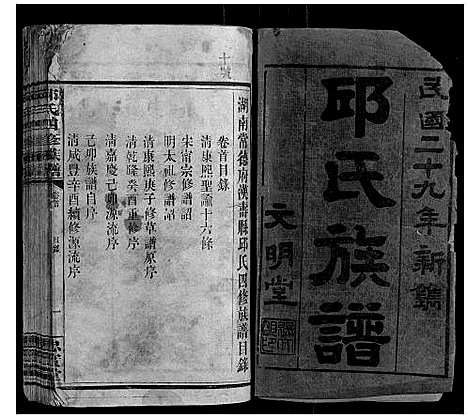 民國二十九年新鐫
邱氏族譜
文明堂
湖南常德府漢壽縣邱氏四修族譜目錄
卷首目錄
清康熙聖諭十六條
宋甯宗修譜詔
明太祖修譜詔
清康熙庚子修草譜原序
清乾隆癸酉重修序
清嘉慶己卯源流序
己卯族譜自序
清咸豐辛酉續修源流序